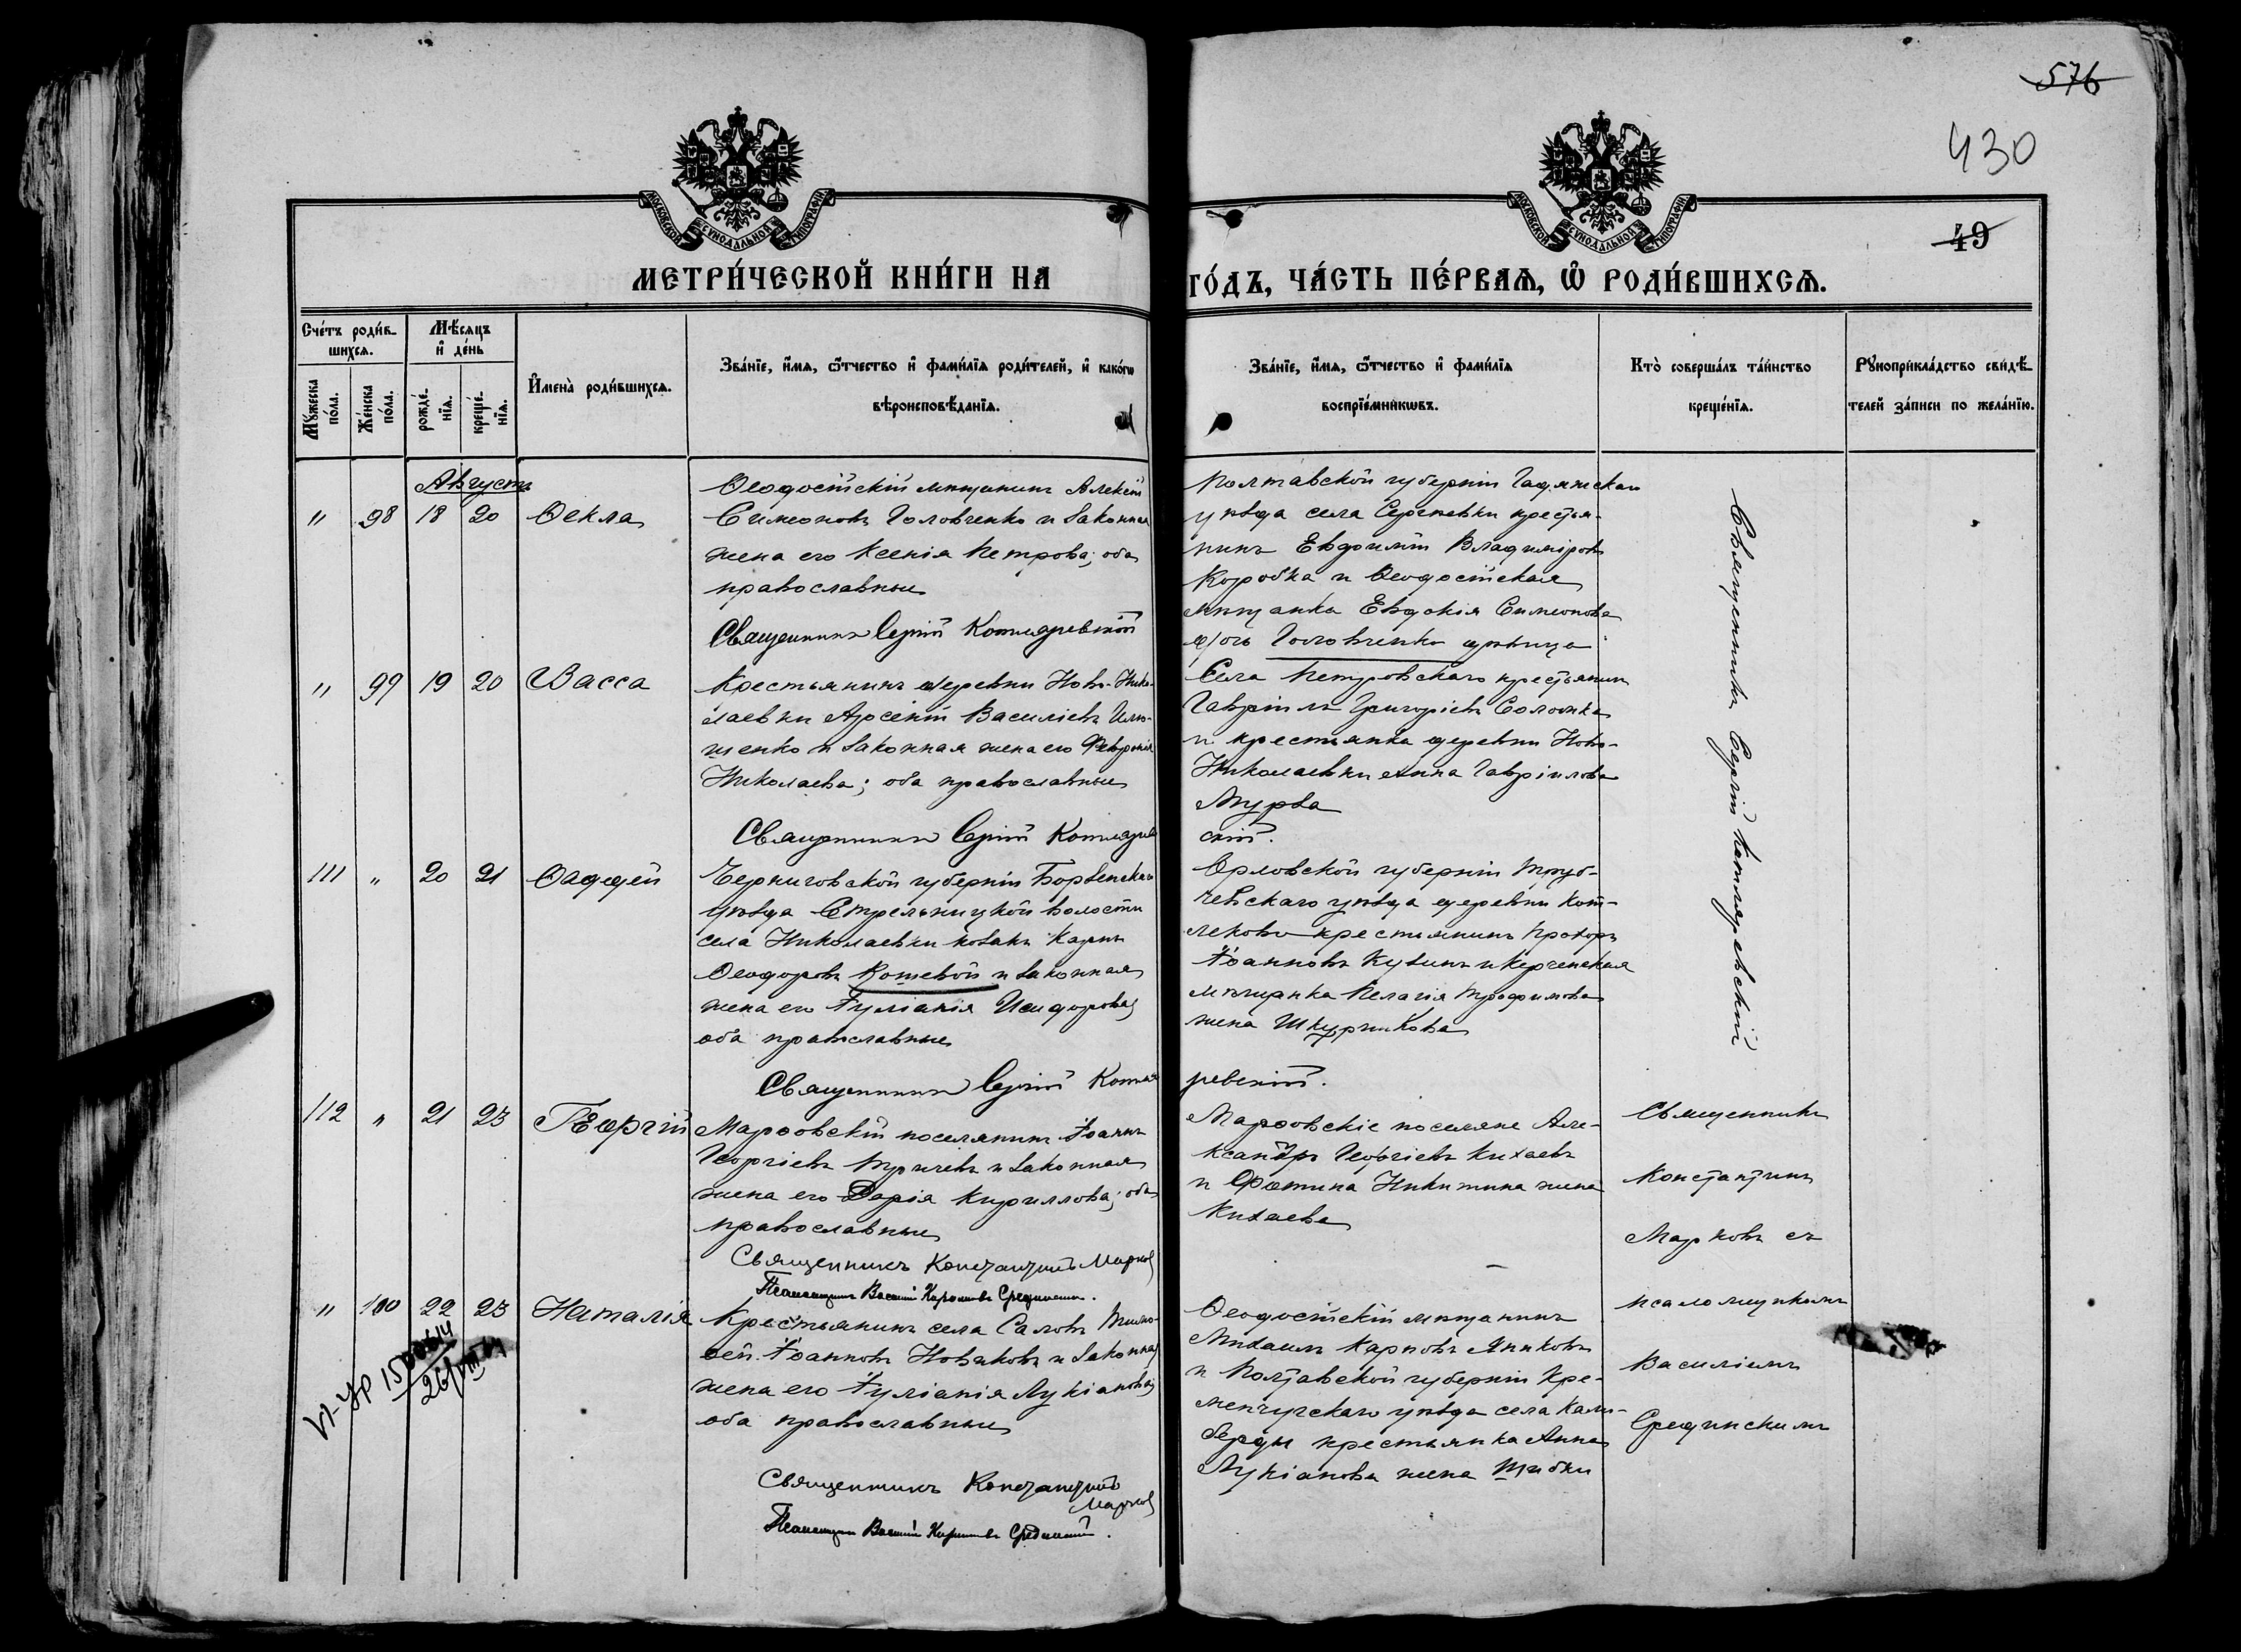 576
430
49
МОСКОВСКОЙ СѴНОДАЛЬНОЙ ТИПОГРАФІИ
МОСКОВСКОЙ СѴНОДАЛЬНОЙ ТИПОГРАФІИ
МЕТРИ́ЧЕСКОЙ КНИ́ГИ НА
ГО́ДЪ, ЧА́СТЬ ПЕ́РВАѦ, Ѡ҆ РОДИ́ВШИХСѦ.
Сче́тъ роди́в-
шихсѧ.
Мꙋ́жеска по́ла.
Же́нска по́ла.
Мѣ́сѧцъ
и҆ де́нь
рожде́-
нїѧ.
креще́-
нїѧ.
И҆мена̀ роди́вшихсѧ.
Зва́нїе, и҆́мѧ, ѻ҆́тчество и҆ фами́лїѧ роди́телей, и҆ како́гѡ
вѣроисповѣ́данїѧ.
Зва́нїе, и҆́мѧ, ѻ҆́тчество и҆ фами́лїѧ
воспрїе́мникѡвъ.
Кто̀ соверша́лъ та́инство
креще́нїѧ.
Рꙋкоприкла́дство свидѣ́-
телей за́писи по жела́нїю.
Августъ
" 98 18 20 Ѳекла
Ѳеодосійскій мѣщанинъ Алексій
Симеоновъ Головченко и законная
жена его Ксенія Петрова; оба
православные
Священникъ Сергій Котляревскій
Полтавской губерніи Гадячскаго
уѣзда села крестья-
нинъ Евфимій Владиміровъ
Коробка и Ѳеодосійская
мѣщанка Евдокія Симеонова
дочь Головченко дѣвица
" 99 19 20 Васса
Крестьянинъ деревни Ново-Нико-
лаевки Арсеній Василіевъ Илю-
щенко и законная жена его Февронія
Николаева; оба православные
Священникъ Сергій Котляров
скій.
Села Петровскаго крестьянинъ
Гавріилъ Григоріевъ
и крестьянка деревни Ново-
Николаевки Анна Гавріилова
Мурза
111 " 20 21 Ѳаддей
Черниговской губерніи Борзенскаго
уѣзда Стрельницкой волости
села Николаевки козакъ Карпъ
Ѳеодоровъ Кошевой и законная
жена его Іуліанія Исидорова;
оба православные
Священникъ Сергій Котля
ревскій.
Орловской губерніи Труб-
чевскаго уѣзда деревни Кот-
лякова крестьянинъ Прохоръ
Іоанновъ Кузинъ и Керченская
мѣщанка Пелагія Трофимова
жена Шкурникова
Священникъ Сергій Котляревскій
112 " 21 23 Георгій
Марѳовскій поселянинъ Іоаннъ
Георгіевъ и законная
жена его Дарія Кириллова; оба
православные
Священникъ Константинъ Марковъ
Псаломщикъ Василій Срединскій.
Марѳовскіе поселяне Але-
ксандръ Георгіевъ Кихаевъ
и Фотина Никитина жена
Кихаева
Священникъ
Константинъ
Марковъ съ
псаломщикомъ
Василіемъ
Срединскимъ
" 100 22 23 Наталія
Крестьянинъ села Тимо-
ѳей Іоанновъ Новаковъ и законная
жена его Іуліанія Лукіанова;
оба православные
Священникъ Константинъ
Марковъ
Псаломщикъ Василій Срединскій.
Ѳеодосійскій мѣщанинъ
Михаилъ Карповъ
и Полтавской губерніи Кре-
менчугскаго уѣзда села Камы-
берды крестьянка Анна
Лукіанова жена